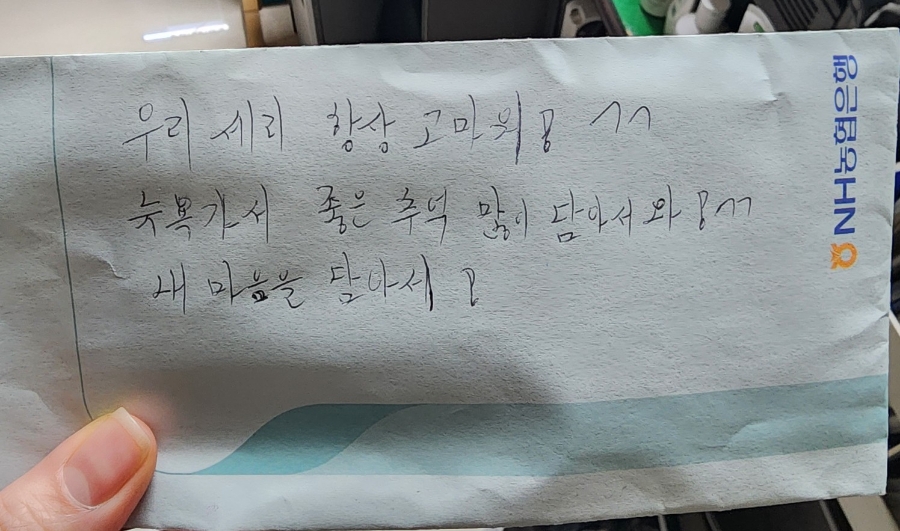 우리 세리 항상 고마워! ^^
뉴욕가서 좋은 추억 많이 담아서 와! ^^
내 마음을 담아서!
NH농협은행